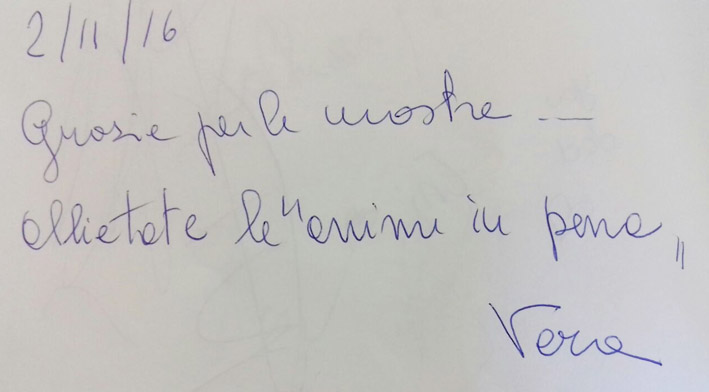 2/11/16
Grazie per le mostre —
allietate le "anime in pena"
Vera